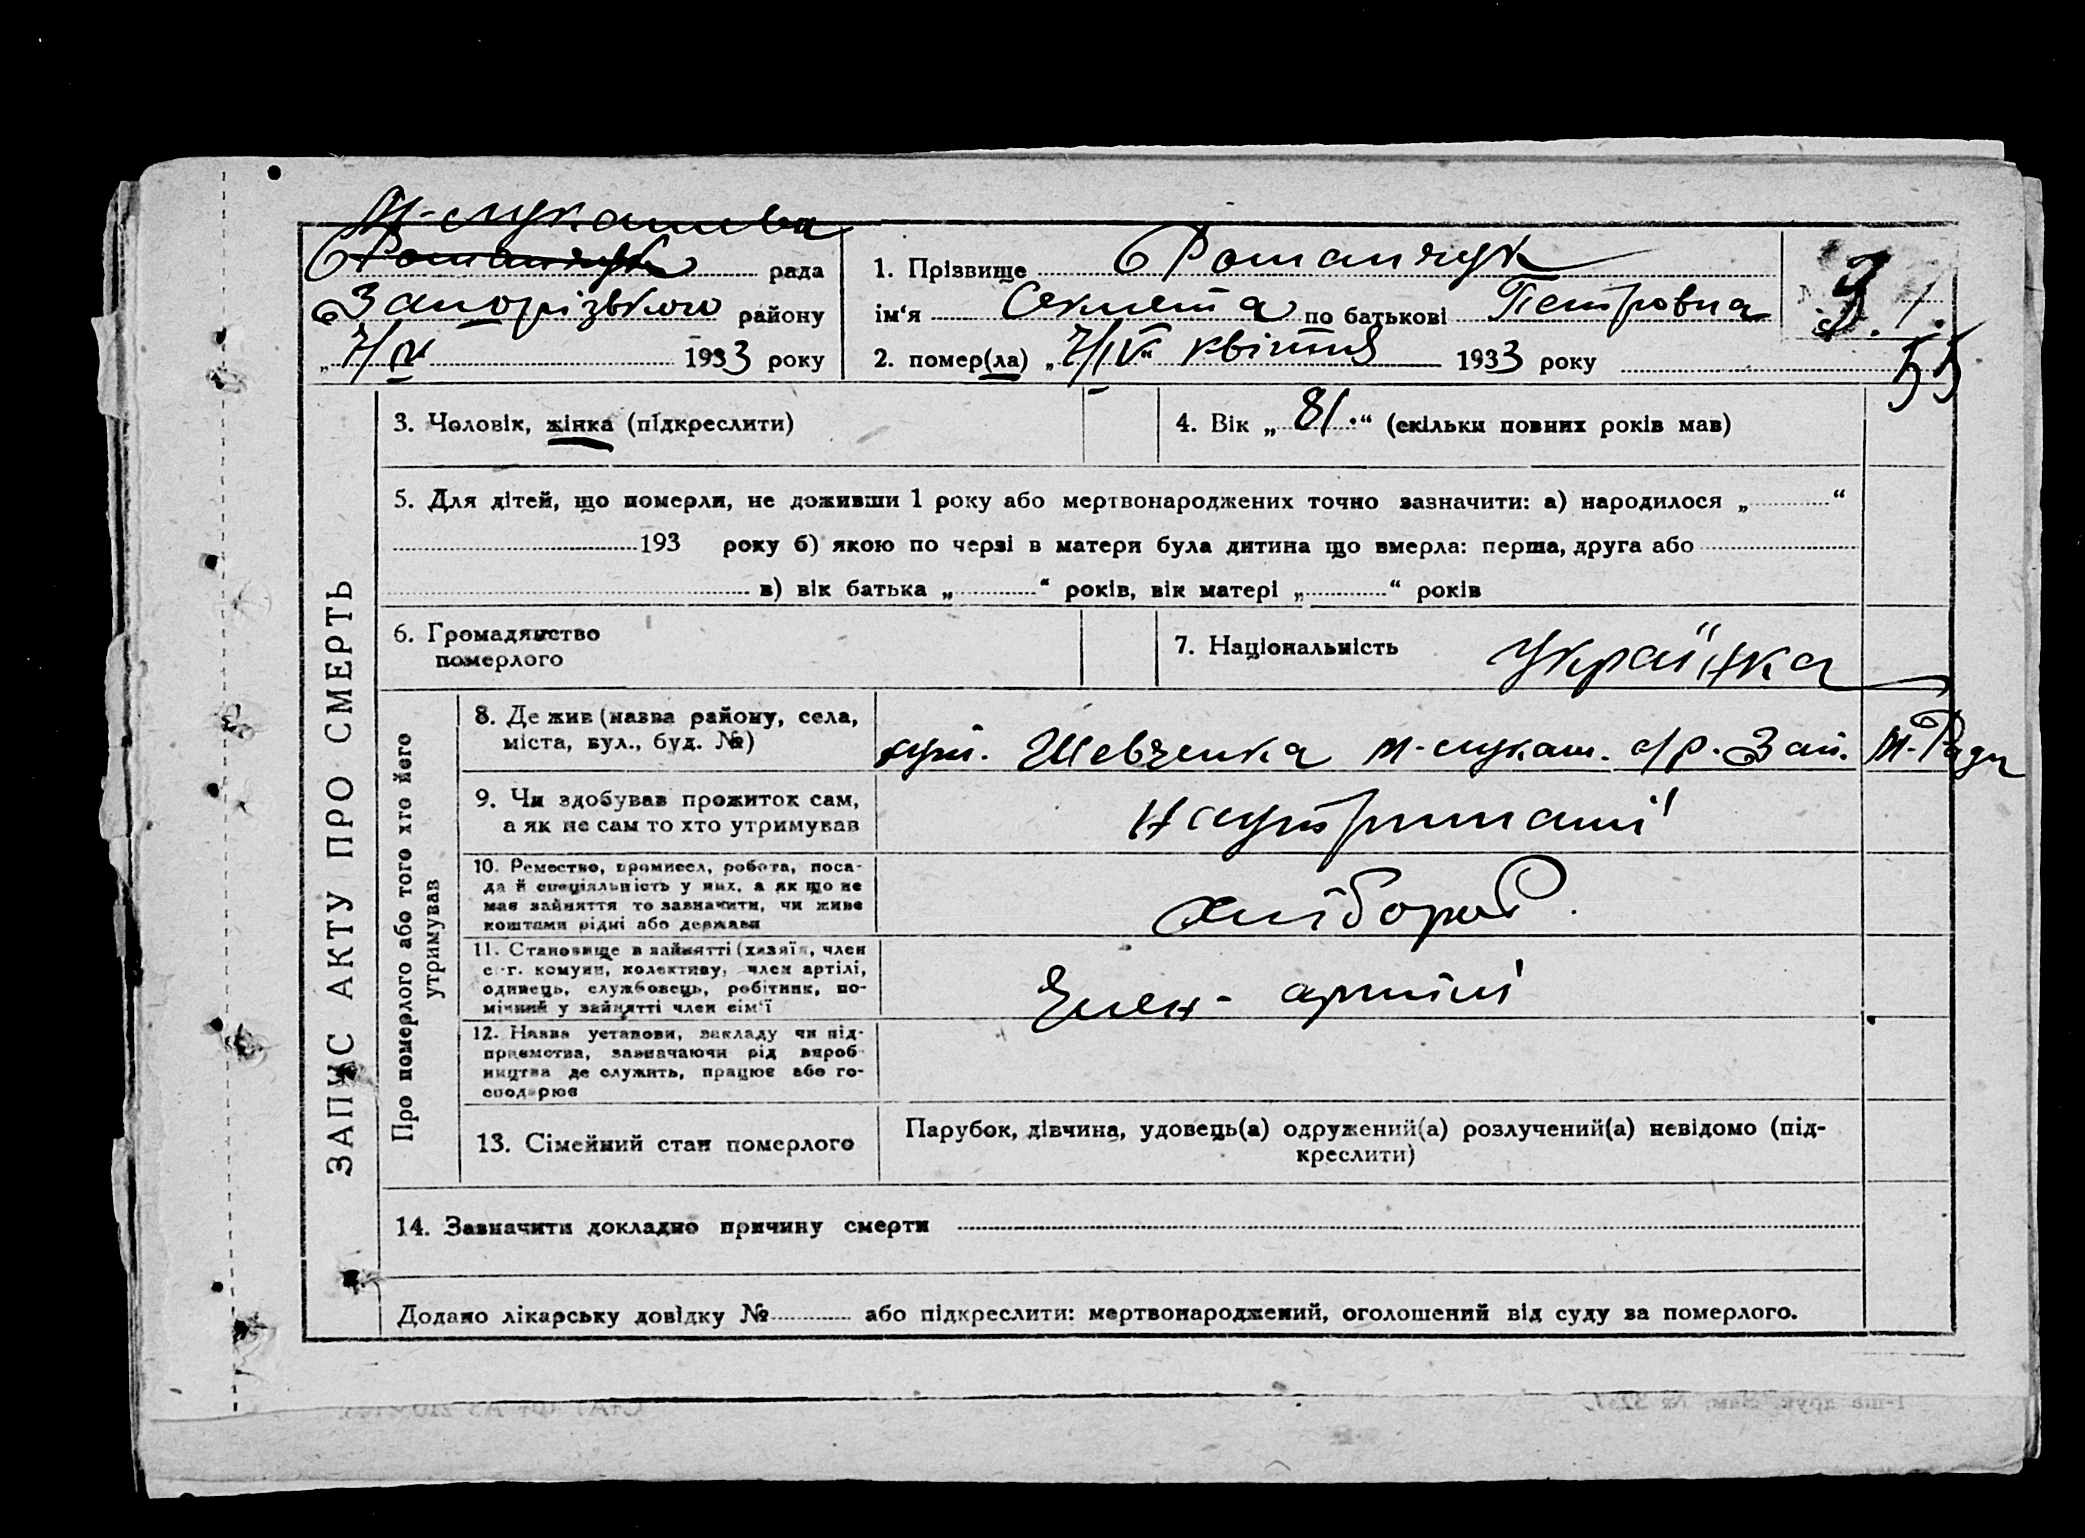 М-лукашева
Романчук рада
Запорізького району
„ 7/IV 1933 року
1. Прізвище Романчук
ім‘я по батькові Петровна
2. помер(ла) „ 7/IV “ квітня 1933 року
55
3. Чоловік, жінка (підкреслити)
4. Вік „ 81. “ (скільки повних років мав)
5. Для дітей, що померли, не доживши 1 року або мертвонароджених точно зазначити: а) народилося „ “
193 року б) якою по черзі в матери була дитина що вмерла: перша, друга або
в) вік батька „ “ років, вік матері „ “ років
6. Громадянство
померлого
7. Національність Українка
ЗАПИС АКТУ ПРО СМЕРТЬ
Про померлого або того хто його
утримував
8. Де жив (назва району, села,
міста, вул., буд. №)
хут. Шевченка М-лукаш. с/р. Зап. М-Ради
9. Чи здобував прожиток сам,
а як не сам то хто утримував
На утриманні
10. Ремество, промисел, робота, поса-
да й спеціяльність у них, а як що не
має зайняття то зазначити, чи живе
коштами рідні або держави
хлібороб.
11. Становище в зайнятті (хазяїн, член
с.-г. комуни, колективу, член артілі,
одинець, службовець, робітник, по-
мічний у зайнятті член сім‘ї
Член- артілі
12. Назва установи, закладу чи під-
приємства, зазначаючи рід вироб-
ництва де служить, працює або го-
сподарює
13. Сімейний стан померлого
Парубок, дівчина, удовець(а) одружений(а) розлучений(а) невідомо (під-
креслити)
14. Зазначити докладно причину смерти
Додано лікарську довідку № або підкреслити: мертвонароджений, оголошений від суду за померлого.